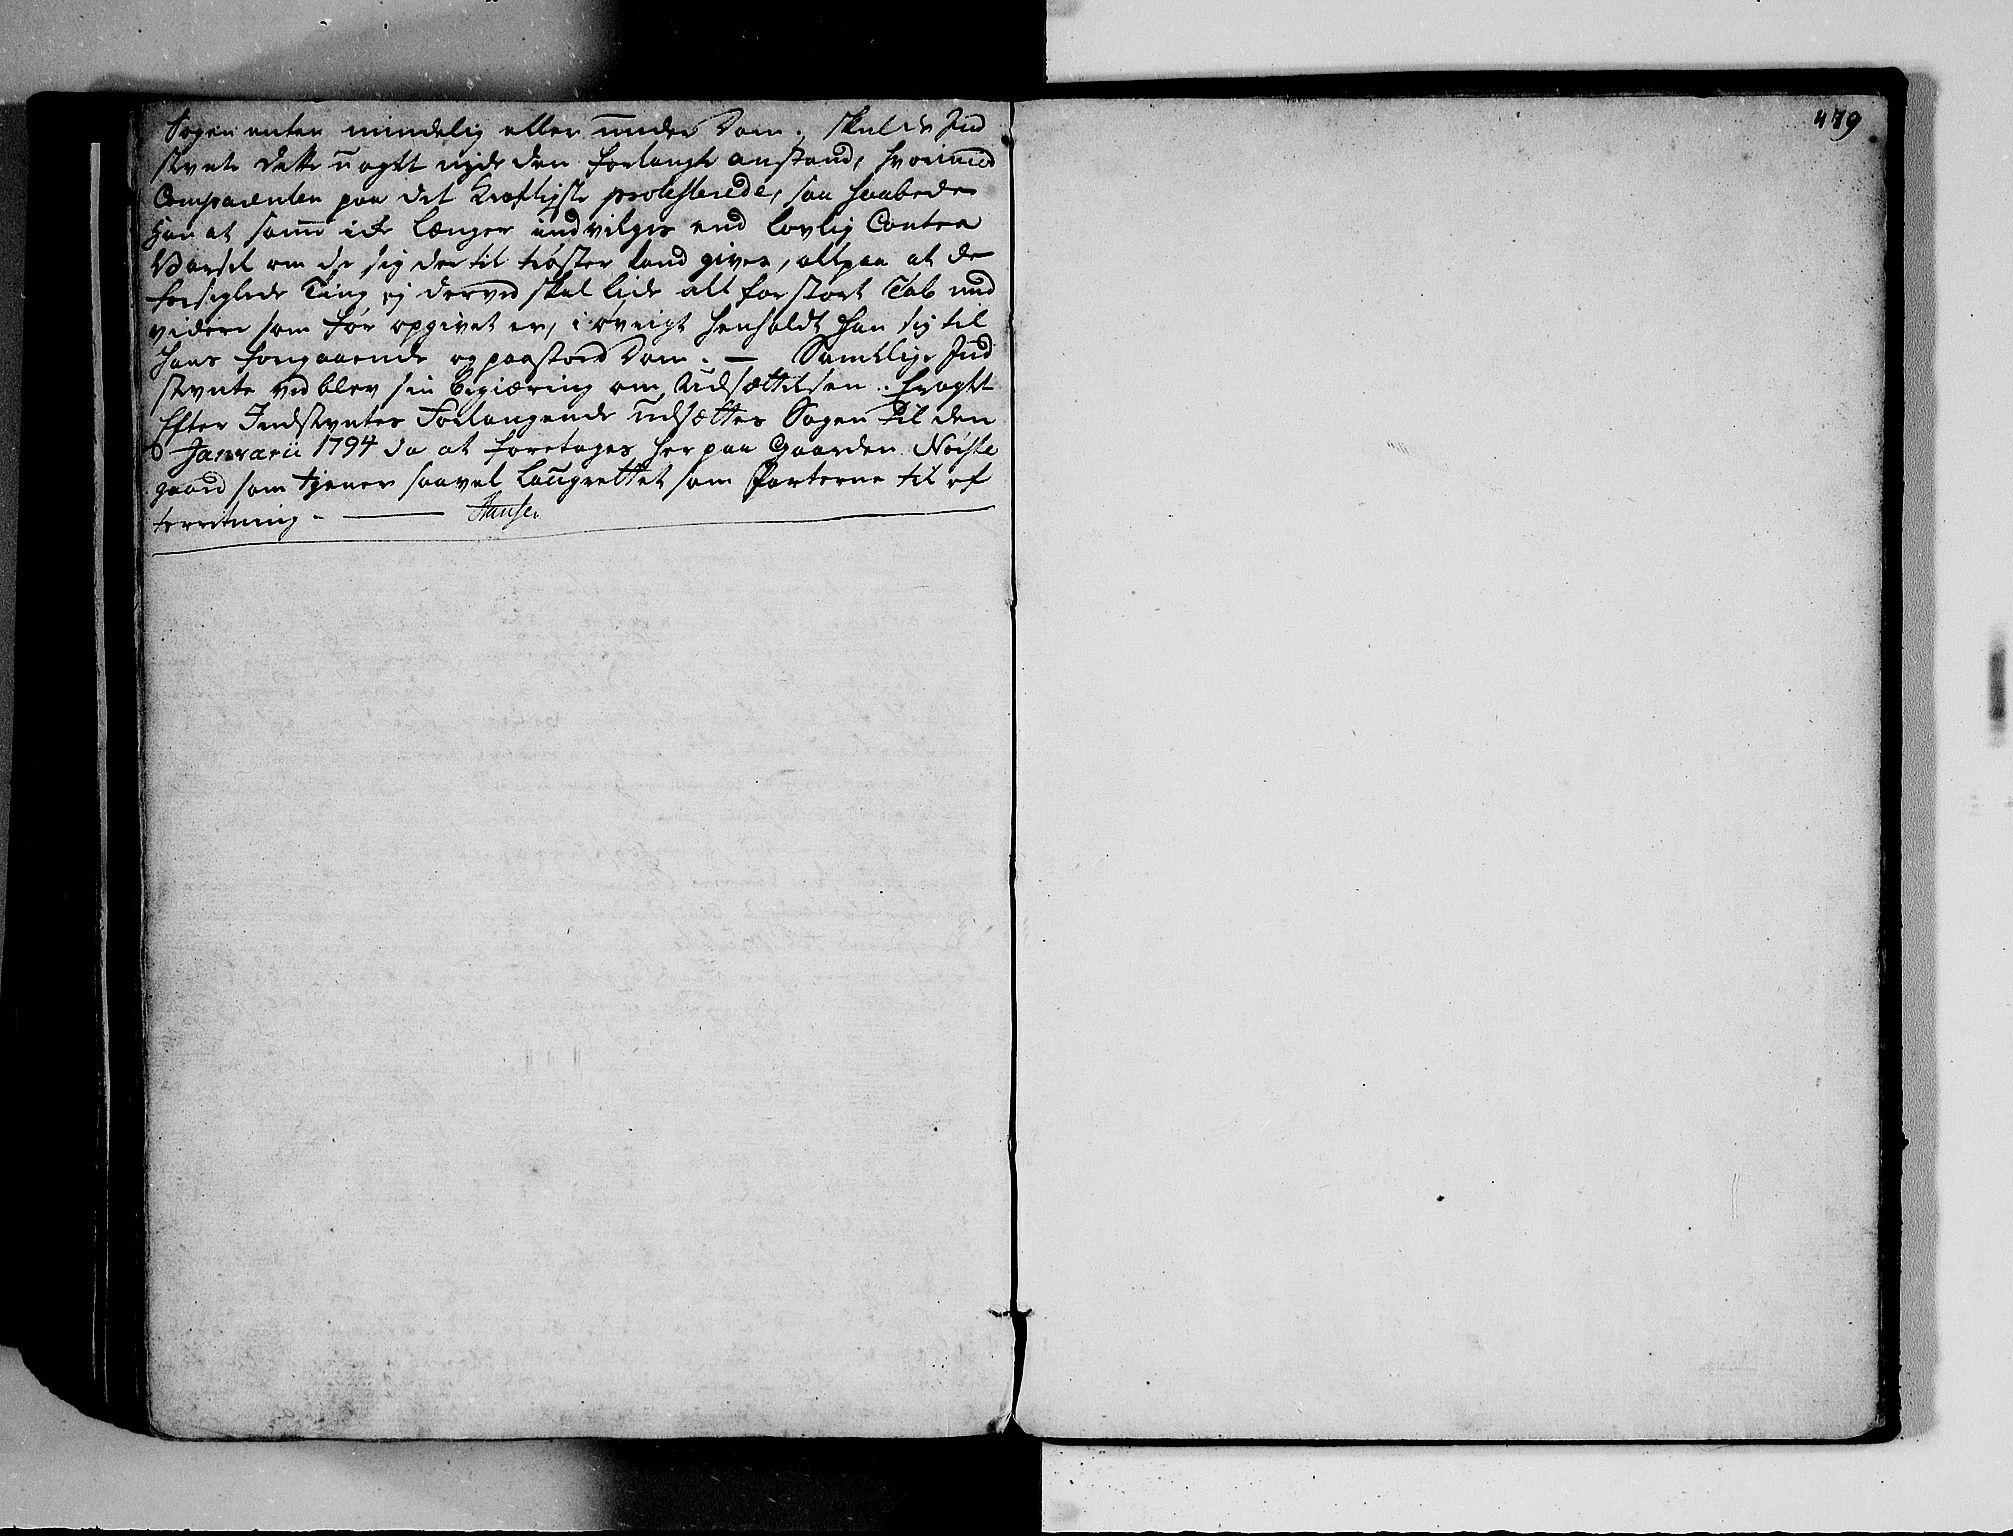 Sagen enten mindelig eller under Dom. skulde Ind
stevnte dette uagtt nyde den forlangte anstand, hvorimod
Comparenten paa det kraftigste protesterede, saa haabede
Han at samme icke længer indvilges end lovlig Contra
Varsel om de sig der til trøster kand gives, alt paa at de
forseglede Ting ej derved skal lide alt for stort Tab und
videre som før opgivet er, i øvrigt henholdt han sig til
hans foregaaende og paastod Dom. — Samtlige Ind
stevnte ved blev sin begiæring om Udsættelsen. Eragtt
Efter Indstevntes Forlangende udsættes Sagen til den
6 Januarii 1794 da at foretages her paa Gaarden Nøiste
gaard som tjener saavel Laugrettet som Parterne til ef
terretning. — Hansen
479